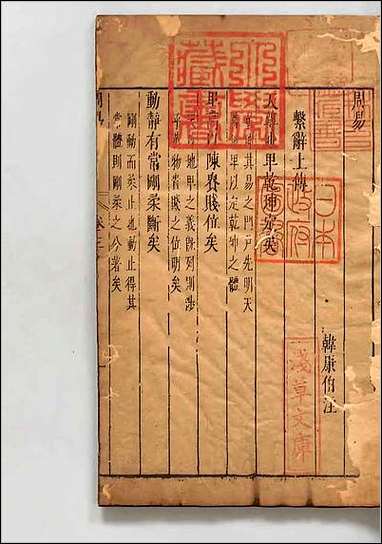 周易
繫辭上傳
韓康伯注
天尊地卑乾坤定矣
其易之門戶先明天
卑以定乾坤之體
陳貴賤位矣
地卑之義旣列則涉
物貴賤之位明矣
動靜有常剛柔斷矣
剛動而柔止也動止得其
常體則剛柔之分著矣
日本
政府
圖書
淺草文庫
藏書